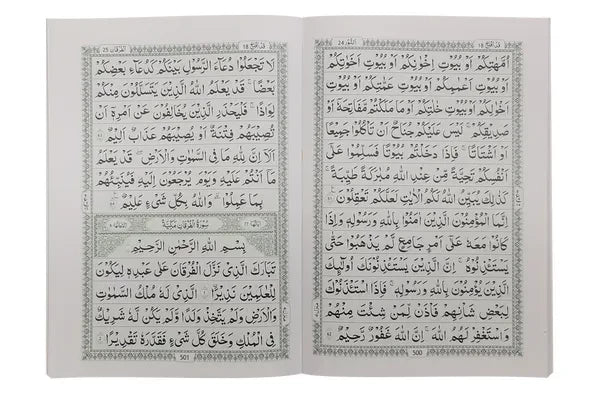 النُّوْر 24
قَدْ اَفْلَحَ 18
اُمَّهٰتِكُمْ اَوْ بُيُوْتِ اِخْوَانِكُمْ اَوْ بُيُوْتِ اَخَوٰتِكُمْ
اَوْ بُيُوْتِ اَعْمَامِكُمْ اَوْ بُيُوْتِ عَمّٰتِكُمْ اَوْ بُيُوْتِ
اَخْوَالِكُمْ اَوْ بُيُوْتِ خٰلٰتِكُمْ اَوْ مَا مَلَكْتُمْ مَّفَاتِحَهٗۤ اَوْ
صَدِيْقِكُمْ ؕ لَيْسَ عَلَيْكُمْ جُنَاحٌ اَنْ تَاْكُلُوْا جَمِيْعًا
اَوْ اَشْتَاتًا ؕ فَاِذَا دَخَلْتُمْ بُيُوْتًا فَسَلِّمُوْا عَلٰۤى
اَنْفُسِكُمْ تَحِيَّةً مِّنْ عِنْدِ اللّٰهِ مُبٰرَكَةً طَيِّبَةً ؕ
كَذٰلِكَ يُبَيِّنُ اللّٰهُ لَكُمُ الْاٰيٰتِ لَعَلَّكُمْ تَعْقِلُوْنَ
اِنَّمَا الْمُؤْمِنُوْنَ الَّذِيْنَ اٰمَنُوْا بِاللّٰهِ وَرَسُوْلِهٖ وَاِذَا
كَانُوْا مَعَهٗ عَلٰۤى اَمْرٍ جَامِعٍ لَّمْ يَذْهَبُوْا حَتّٰى
يَسْتَاْذِنُوْهُ ؕ اِنَّ الَّذِيْنَ يَسْتَاْذِنُوْنَكَ اُولٰٓئِكَ
الَّذِيْنَ يُؤْمِنُوْنَ بِاللّٰهِ وَرَسُوْلِهٖ ۚ فَاِذَا اسْتَاْذَنُوْكَ
لِبَعْضِ شَاْنِهِمْ فَاْذَنْ لِّمَنْ شِئْتَ مِنْهُمْ
وَاسْتَغْفِرْ لَهُمُ اللّٰهَ ؕ اِنَّ اللّٰهَ غَفُوْرٌ رَّحِيْمٌ
500
قَدْ اَفْلَحَ 18
اَلْفُرْقَان 25
لَا تَجْعَلُوْا دُعَآءَ الرَّسُوْلِ بَيْنَكُمْ كَدُعَآءِ بَعْضِكُمْ
بَعْضًا ؕ قَدْ يَعْلَمُ اللّٰهُ الَّذِيْنَ يَتَسَلَّلُوْنَ مِنْكُمْ
لِوَاذًا ۚ فَلْيَحْذَرِ الَّذِيْنَ يُخَالِفُوْنَ عَنْ اَمْرِهٖۤ اَنْ
تُصِيْبَهُمْ فِتْنَةٌ اَوْ يُصِيْبَهُمْ عَذَابٌ اَلِيْمٌ
اَلَاۤ اِنَّ لِلّٰهِ مَا فِى السَّمٰوٰتِ وَالْاَرْضِ ؕ قَدْ يَعْلَمُ
مَاۤ اَنْتُمْ عَلَيْهِ ؕ وَيَوْمَ يُرْجَعُوْنَ اِلَيْهِ فَيُنَبِّئُهُمْ
بِمَا عَمِلُوْا ؕ وَاللّٰهُ بِكُلِّ شَىْءٍ عَلِيْمٌ
سُوْرَةُ الْفُرْقَانِ مَكِّيَّةٌ
بِسْمِ اللّٰهِ الرَّحْمٰنِ الرَّحِيْمِ
تَبٰرَكَ الَّذِىْ نَزَّلَ الْفُرْقَانَ عَلٰى عَبْدِهٖ لِيَكُوْنَ
لِلْعٰلَمِيْنَ نَذِيْرًا ۙ الَّذِىْ لَهٗ مُلْكُ السَّمٰوٰتِ
وَالْاَرْضِ وَلَمْ يَتَّخِذْ وَلَدًا وَّلَمْ يَكُنْ لَّهٗ شَرِيْكٌ
فِى الْمُلْكِ وَخَلَقَ كُلَّ شَىْءٍ فَقَدَّرَهٗ تَقْدِيْرًا
501